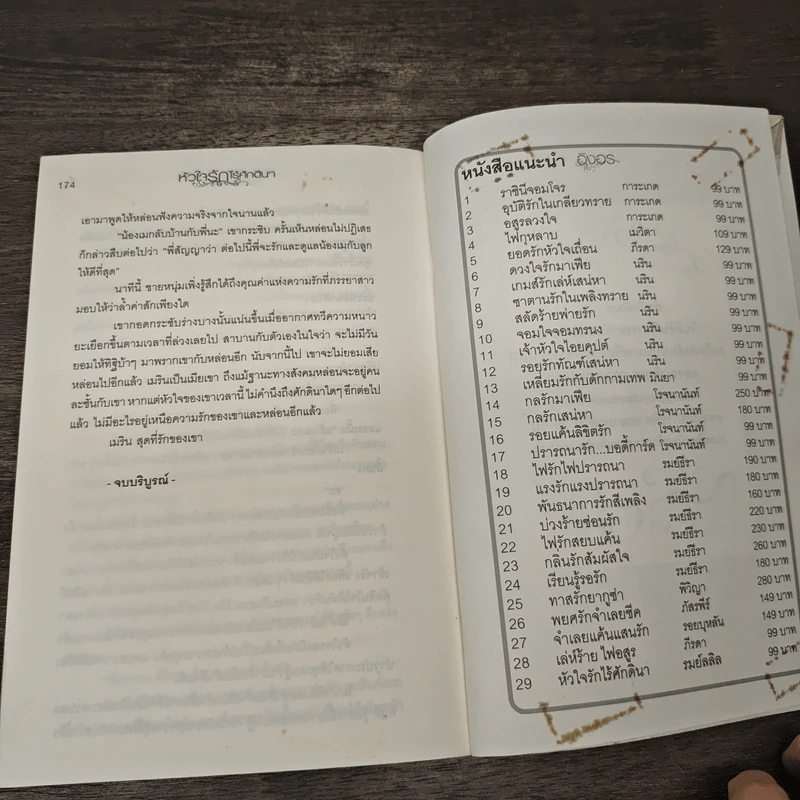 174
หัวใจรักไร้ศักดินา
เอามาพูดให้หล่อนฟังความจริงจากใจนานแล้ว
"น้องเมกลับบ้านกับพี่นะ" เขากระซิบ ครั้นเห็นหล่อนไม่ปฏิเสธ
ก็กล่าวสืบต่อไปว่า "พี่สัญญาว่า ต่อไปนี้พี่จะรักและดูแลน้องเมกับลูก
ให้ดีที่สุด"
นาทีนี้ ชายหนุ่มเพิ่งรู้สึกได้ถึงคุณค่าแห่งความรักที่ภรรยาสาว
มอบให้ว่าล้ำค่าสักเพียงใด
เขากอดกระชับร่างบางนั้นแน่นขึ้นเมื่ออากาศทวีความหนาว
ยะเยือกขึ้นตามเวลาที่ล่วงเลยไป สาบานกับตัวเองในใจว่า จะไม่มีวัน
ยอมให้ทิฐิบ้าๆ มาพรากเขากับหล่อนอีก นับจากนี้ไป เขาจะไม่ยอมเสีย
หล่อนไปอีกแล้ว เมรินเป็นเมียเขา ถึงแม้ฐานะทางสังคมหล่อนจะอยู่คน
ละชั้นกับเขา หากแต่หัวใจของเขาเวลานี้ ไม่คำนึงถึงศักดินาใดๆ อีกต่อไป
แล้ว ไม่มีอะไรอยู่เหนือความรักของเขาและหล่อนอีกแล้ว
เมริน สุดที่รักของเขา
- จบบริบูรณ์ -
หนังสือแนะนำ อิงอร
1 ราชินีจอมโจร การะเกด 99 บาท
2 อุบัติรักในเกลียวทราย การะเกด 99 บาท
3 อสูรลวงใจ การะเกด 99 บาท
4 ไฟกุหลาบ เมวิตา 109 บาท
5 ยอดรักหัวใจเถื่อน ภีรดา 129 บาท
6 ดวงใจรักมาเฟีย นริน 99 บาท
7 เกมส์รักเล่ห์เสน่หา นริน 99 บาท
8 ซาตานรักในเพลิงทราย นริน 99 บาท
9 สลัดร้ายพ่ายรัก นริน 99 บาท
10 จอมใจจอมทรนง นริน 99 บาท
11 เจ้าหัวใจไอยคุปต์ นริน 99 บาท
12 รอยรักทัณฑ์เสน่หา นริน 99 บาท
13 เหลี่ยมรักกับดักกามเทพ มินยา 99 บาท
14 กลรักมาเฟีย โรจนานันท์ 250 บาท
15 กลรักเสน่หา โรจนานันท์ 180 บาท
16 รอยแค้นลิขิตรัก โรจนานันท์ 99 บาท
17 ปรารถนารัก...บอดี้การ์ด โรจนานันท์ 99 บาท
18 ไฟรักไฟปรารถนา รมย์ธีรา 190 บาท
19 แรงรักแรงปรารถนา รมย์ธีรา 180 บาท
20 พันธนาการรักสีเพลิง รมย์ธีรา 160 บาท
21 บ่วงร้ายซ่อนรัก รมย์ธีรา 220 บาท
22 ไฟรักสยบแค้น รมย์ธีรา 230 บาท
23 กลิ่นรักสัมผัสใจ รมย์ธีรา 260 บาท
24 เรียนรู้รอรัก รมย์ธีรา 180 บาท
25 ทาสรักยากูซ่า พิวิญา 280 บาท
26 พยศรักจำเลยชีค ภัสรพีร์ 149 บาท
27 จำเลยแค้นแสนรัก รอยบุหลัน 149 บาท
28 เล่ห์ร้าย ไฟอสูร ภีรดา 99 บาท
29 หัวใจรักไร้ศักดินา รมย์ลลิล 99 บาท